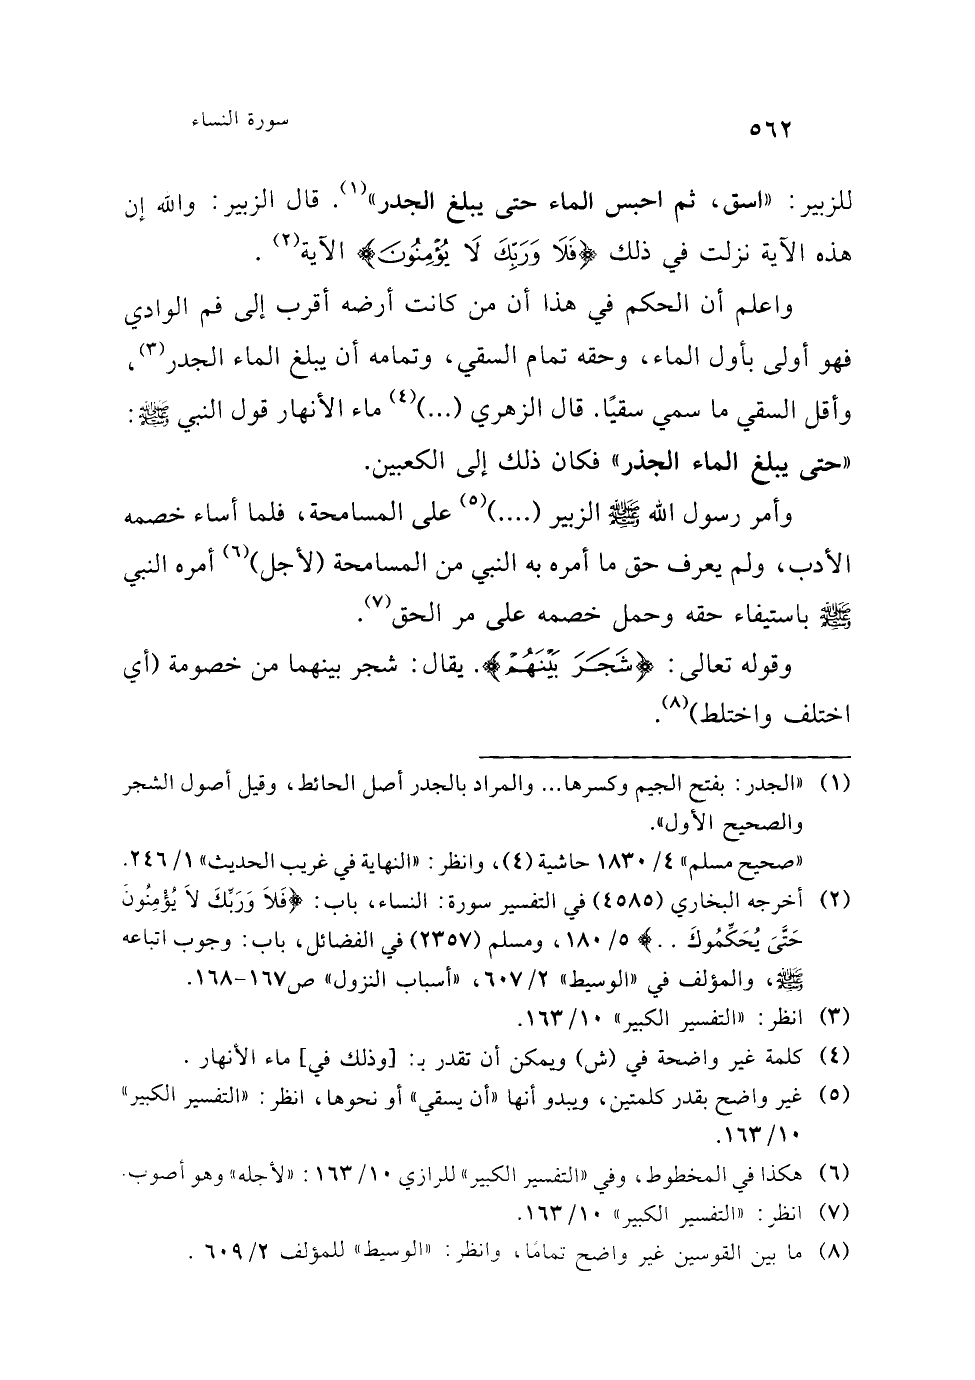 ٥٦٢
سورة النساء
للزبير: «اسق، ثم احبس الماء حتى يبلغ الجدر»(١). قال الزبير: والله إن
هذه الآية نزلت في ذلك ﴿فَلَا وَرَبِّكَ لَا يُؤْمِنُونَ﴾ الآية(٢).
واعلم أن الحكم في هذا أن من كانت أرضه أقرب إلى فم الوادي
فهو أولى بأول الماء، وحقه تمام السقي، وتمامه أن يبلغ الماء الجدر(٣)،
وأقل السقي ما سمي سقيًا. قال الزهري (...)(٤) ماء الأنهار قول النبي ﷺ:
«حتى يبلغ الماء الجذر» فكان ذلك إلى الكعبين.
وأمر رسول الله ﷺ الزبير (....)(٥) على المسامحة، فلما أساء خصمه
الأدب، ولم يعرف حق ما أمره به النبي من المسامحة (لأجل)(٦) أمره النبي
ﷺ باستيفاء حقه وحمل خصمه على مر الحق(٧).
وقوله تعالى: ﴿شَجَرَ بَيْنَهُمْ﴾. يقال: شجر بينهما من خصومة (أي
اختلف واختلط)(٨).
(١) «الجدر: بفتح الجيم وكسرها... والمراد بالجدر أصل الحائط، وقيل أصول الشجر
والصحيح الأول».
«صحيح مسلم» ٤/ ١٨٣٠ حاشية (٤)، وانظر: «النهاية في غريب الحديث» ١/ ٢٤٦.
(٢) أخرجه البخاري (٤٥٨٥) في التفسير سورة: النساء، باب: ﴿فَلاَ وَرَبِّكَ لاَ يُؤْمِنُونَ
حَتَّىَ يُحَكِّمُوكَ ..﴾ ٥/ ١٨٠، ومسلم (٢٣٥٧) في الفضائل، باب: وجوب اتباعه
ﷺ، والمؤلف في «الوسيط» ٢/ ٦٠٧، «أسباب النزول» ص١٦٧-١٦٨.
(٣) انظر: «التفسير الكبير» ١٠/ ١٦٣.
(٤) كلمة غير واضحة في (ش) ويمكن أن تقدر بـ: [وذلك في] ماء الأنهار .
(٥) غير واضح بقدر كلمتين، ويبدو أنها «أن يسقي» أو نحوها، انظر: «التفسير الكبير»
١٠/ ١٦٣.
(٦) هكذا في المخطوط، وفي «التفسير الكبير» للرازي ١٠/ ١٦٣: «لأجله» وهو أصوب.
(٧) انظر: «التفسير الكبير» ١٠/ ١٦٣.
(٨) ما بين القوسين غير واضح تمامًا، وانظر: «الوسيط» للمؤلف ٢/ ٦٠٩ .